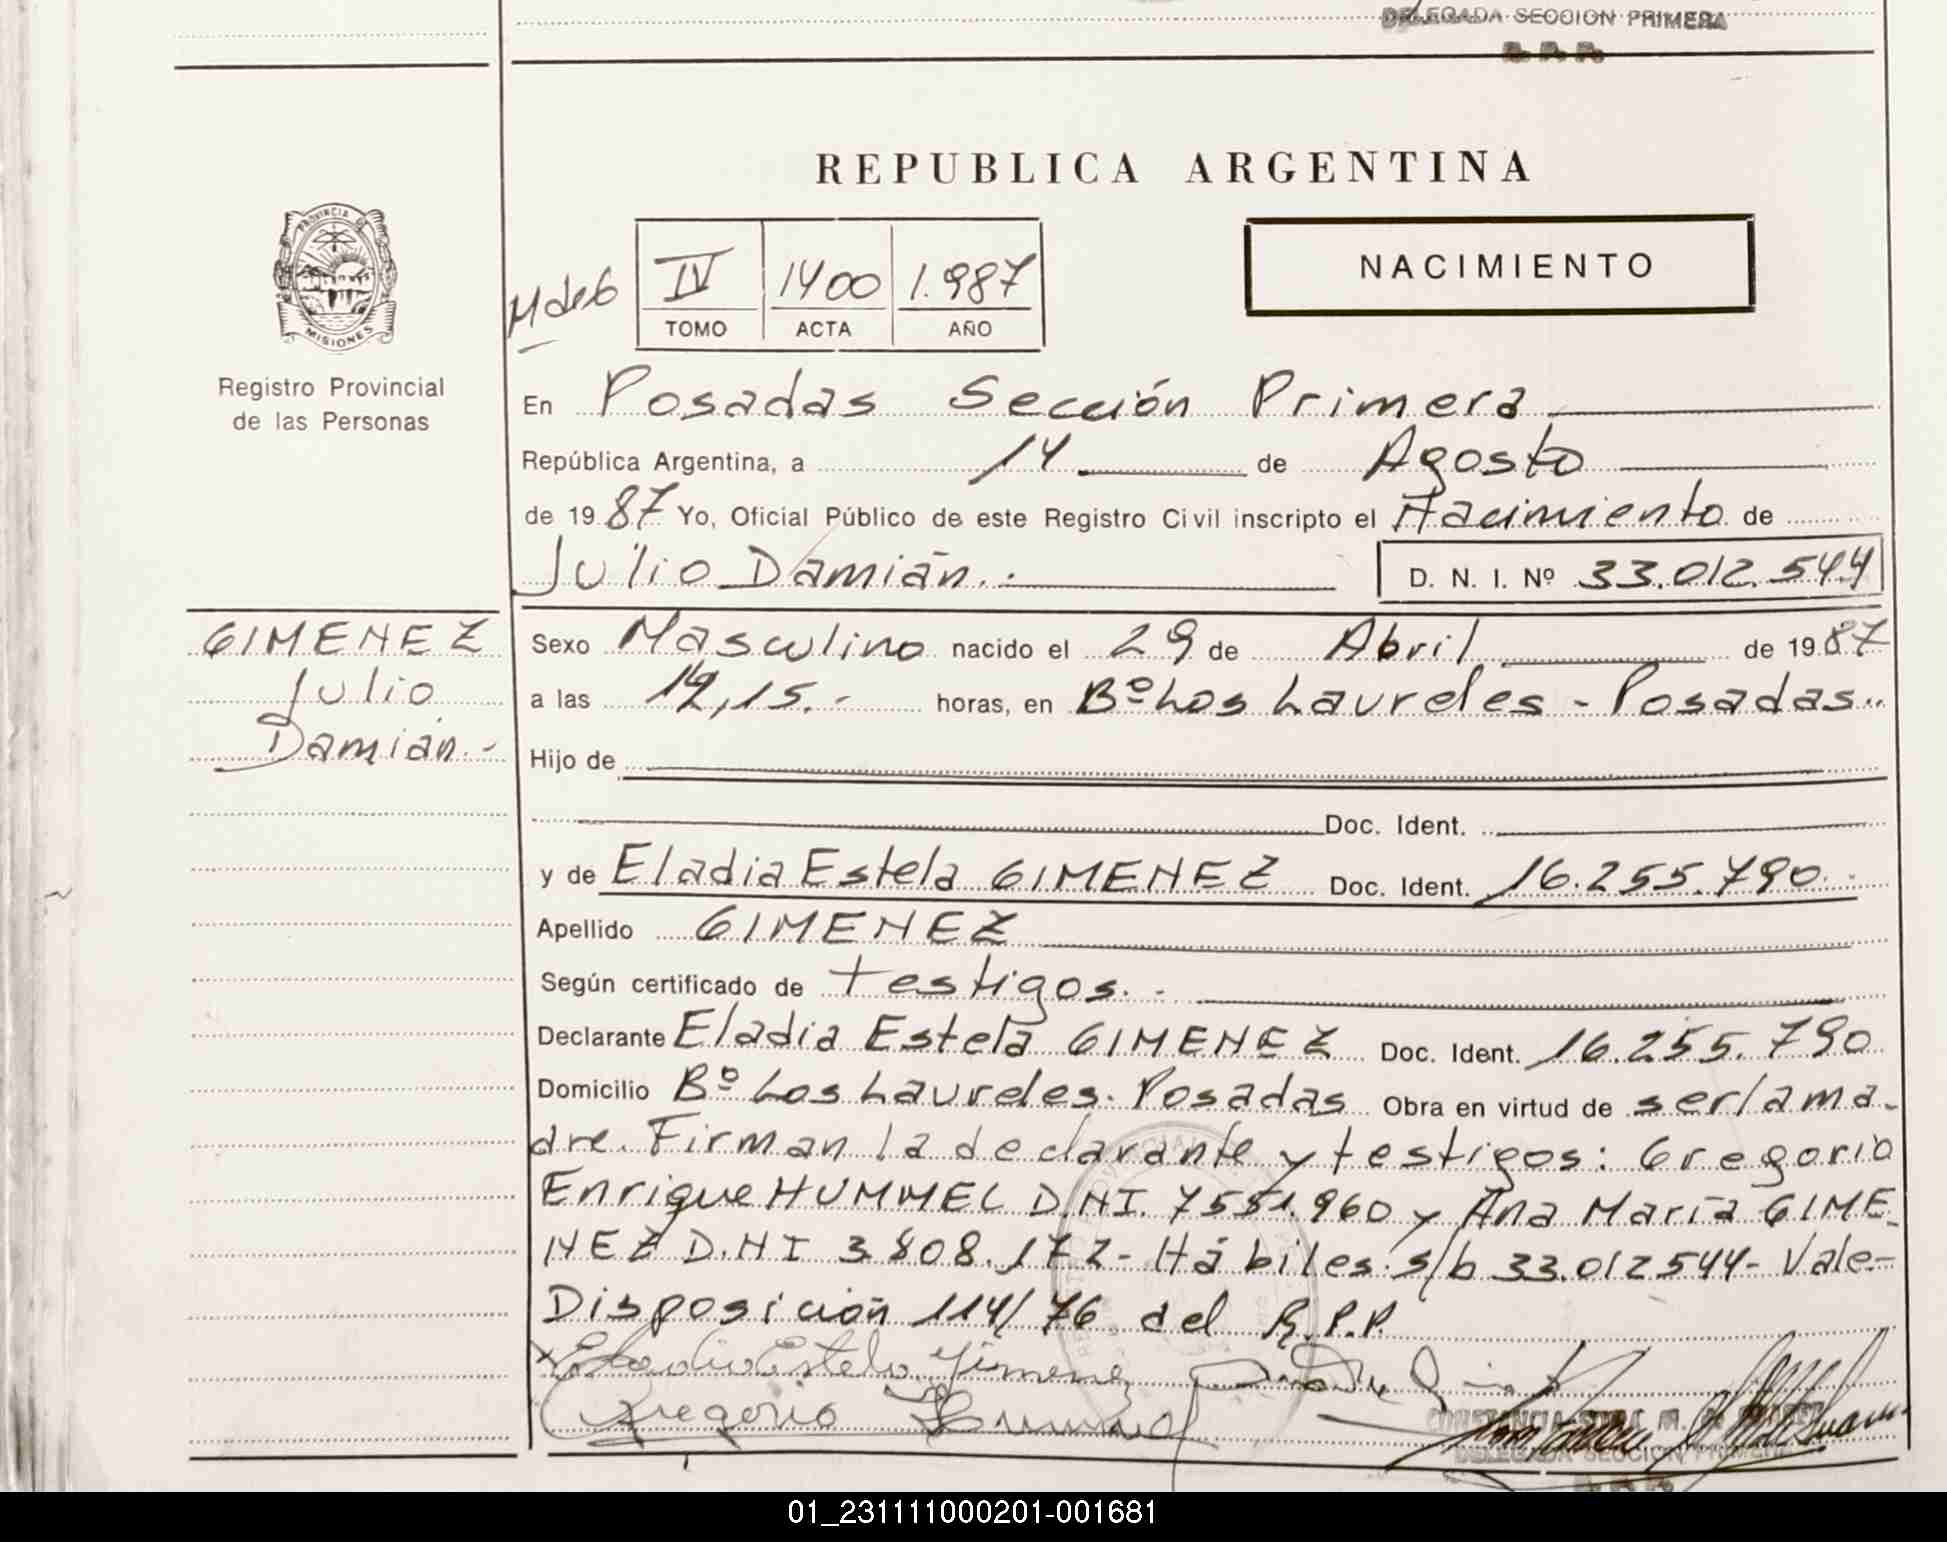 DELEGADA SECCION PRIMERA
R. P. P.
REPUBLICA ARGENTINA
PROVINCIA DE
MISIONES
Registro Provincial
de las Personas
IV 1400 1.987
TOMO ACTA AÑO
NACIMIENTO
En Posadas Sección Primera
República Argentina, a 14 de Agosto
de 1987 Yo, Oficial Público de este Registro Civil inscripto el Nacimiento de
Julio Damián.- D. N. I. Nº 33.012.544
GIMENEZ
Julio
Damián.-
Sexo Masculino nacido el 29 de Abril de 1987
a las ,15.- horas, en Bº Los Laureles - Posadas..
Hijo de
Doc. Ident.
y de Eladia Estela GIMENEZ Doc. Ident. 16.255.790.-
Apellido GIMENEZ
Según certificado de testigos.-
Declarante Eladia Estela GIMENEZ Doc. Ident. 16.255.790
Domicilio Bº Los Laureles. Posadas Obra en virtud de ser la ma-
dre. Firman la declarante y testigos: Gregorio
Enrique HUMMEL D.NI. 7551.960 y Ana María GIME-
NEZ D.NI 3.808.172- Hábiles. s/b 33.012544- Vale-
Disposición 114/76 del R.P.P.
Eladia Estela Jimenez
Gregorio Hummel
DELEGADA SECCION PRIMERA
01_231111000201-001681